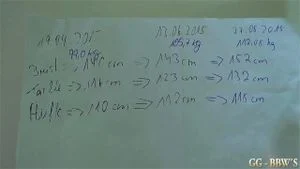 19.04.2015 13.06.2015 27.08.2015
99,0 kg 105,7 kg 112,05 kg
Brust = 140 cm => 143 cm => 152 cm
Taille = 116 cm => 123 cm => 132 cm
Hüfte => 110 cm => 112 cm => 116 cm
GG - BBW'S